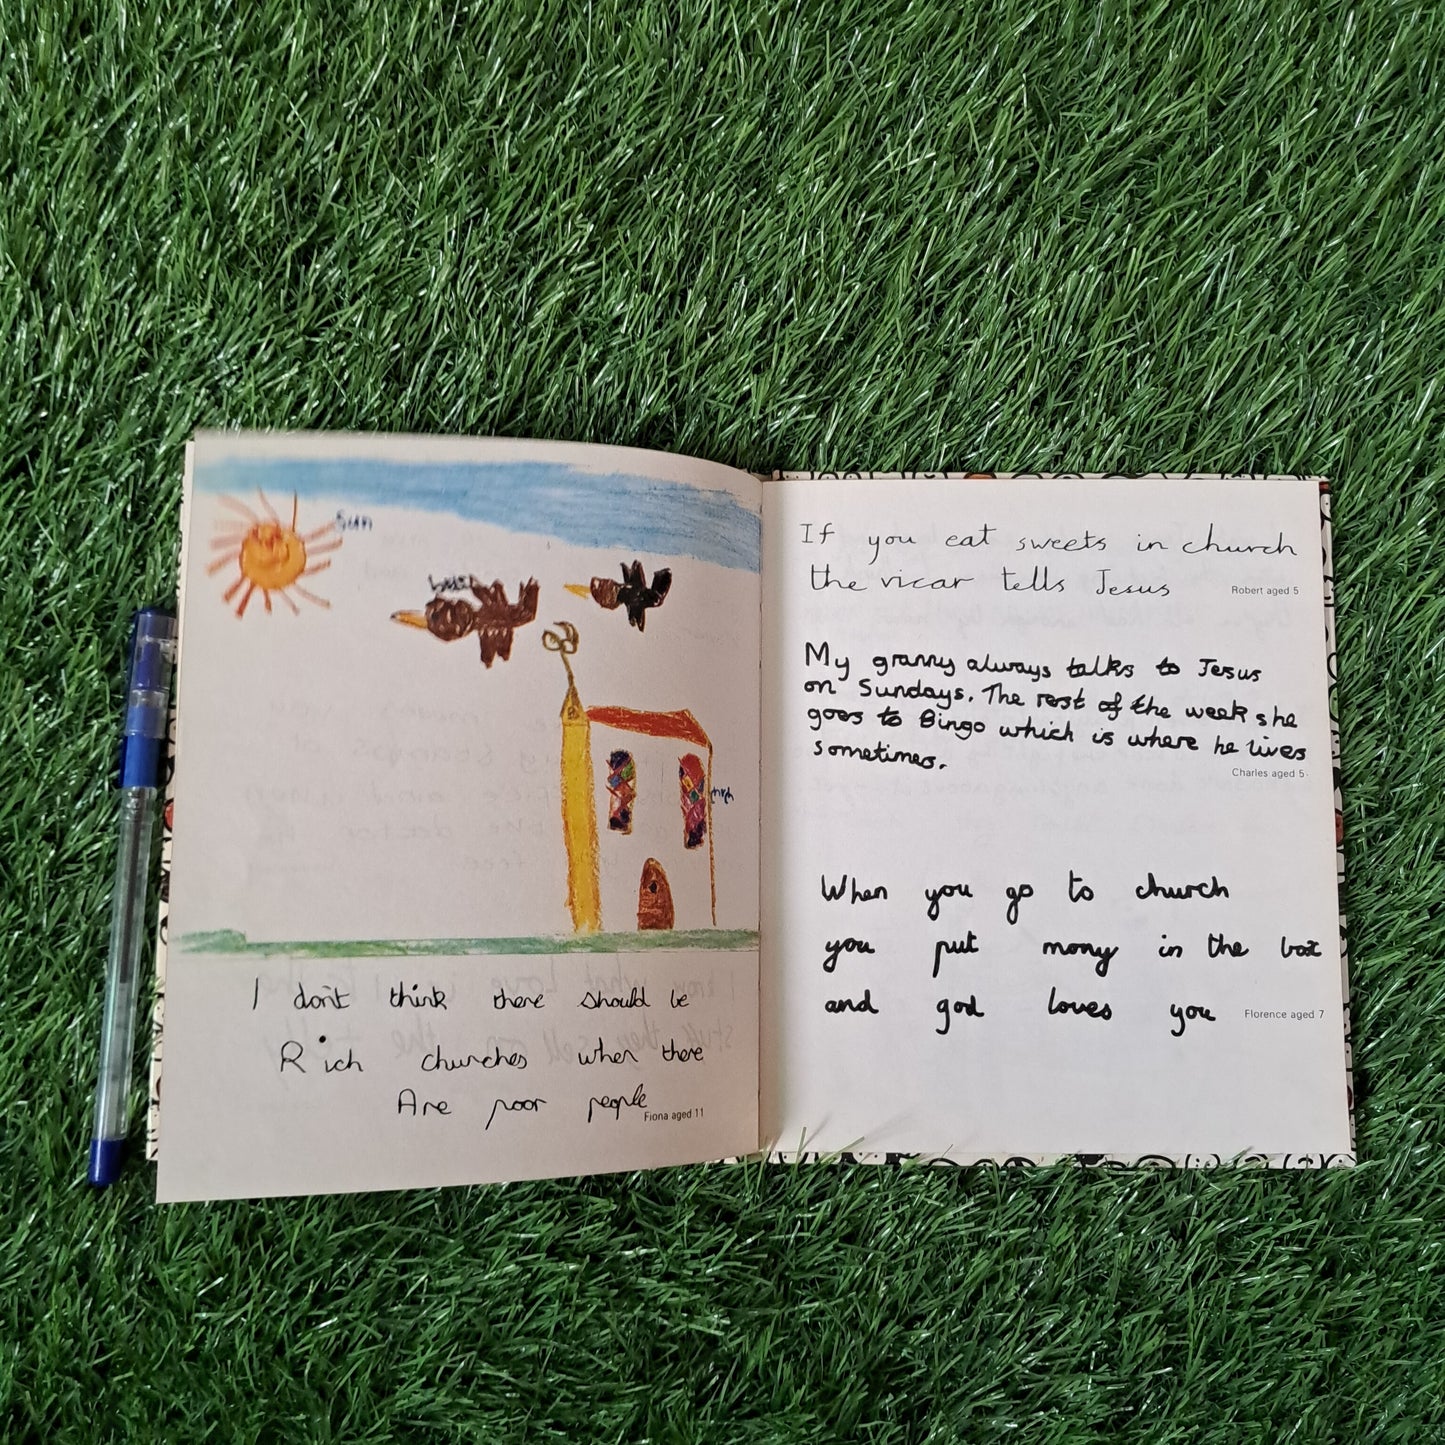 Sun
I don't think there should be
Rich churches when there
Are poor people
Fiona aged 11
If you eat sweets in church
the vicar tells Jesus
Robert aged 5
My granny always talks to Jesus
on Sundays. The rest of the week she
goes to Bingo which is where he lives
sometimes.
Charles aged 5
When you go to church
you put mony in the box
and god loves you
Florence aged 7